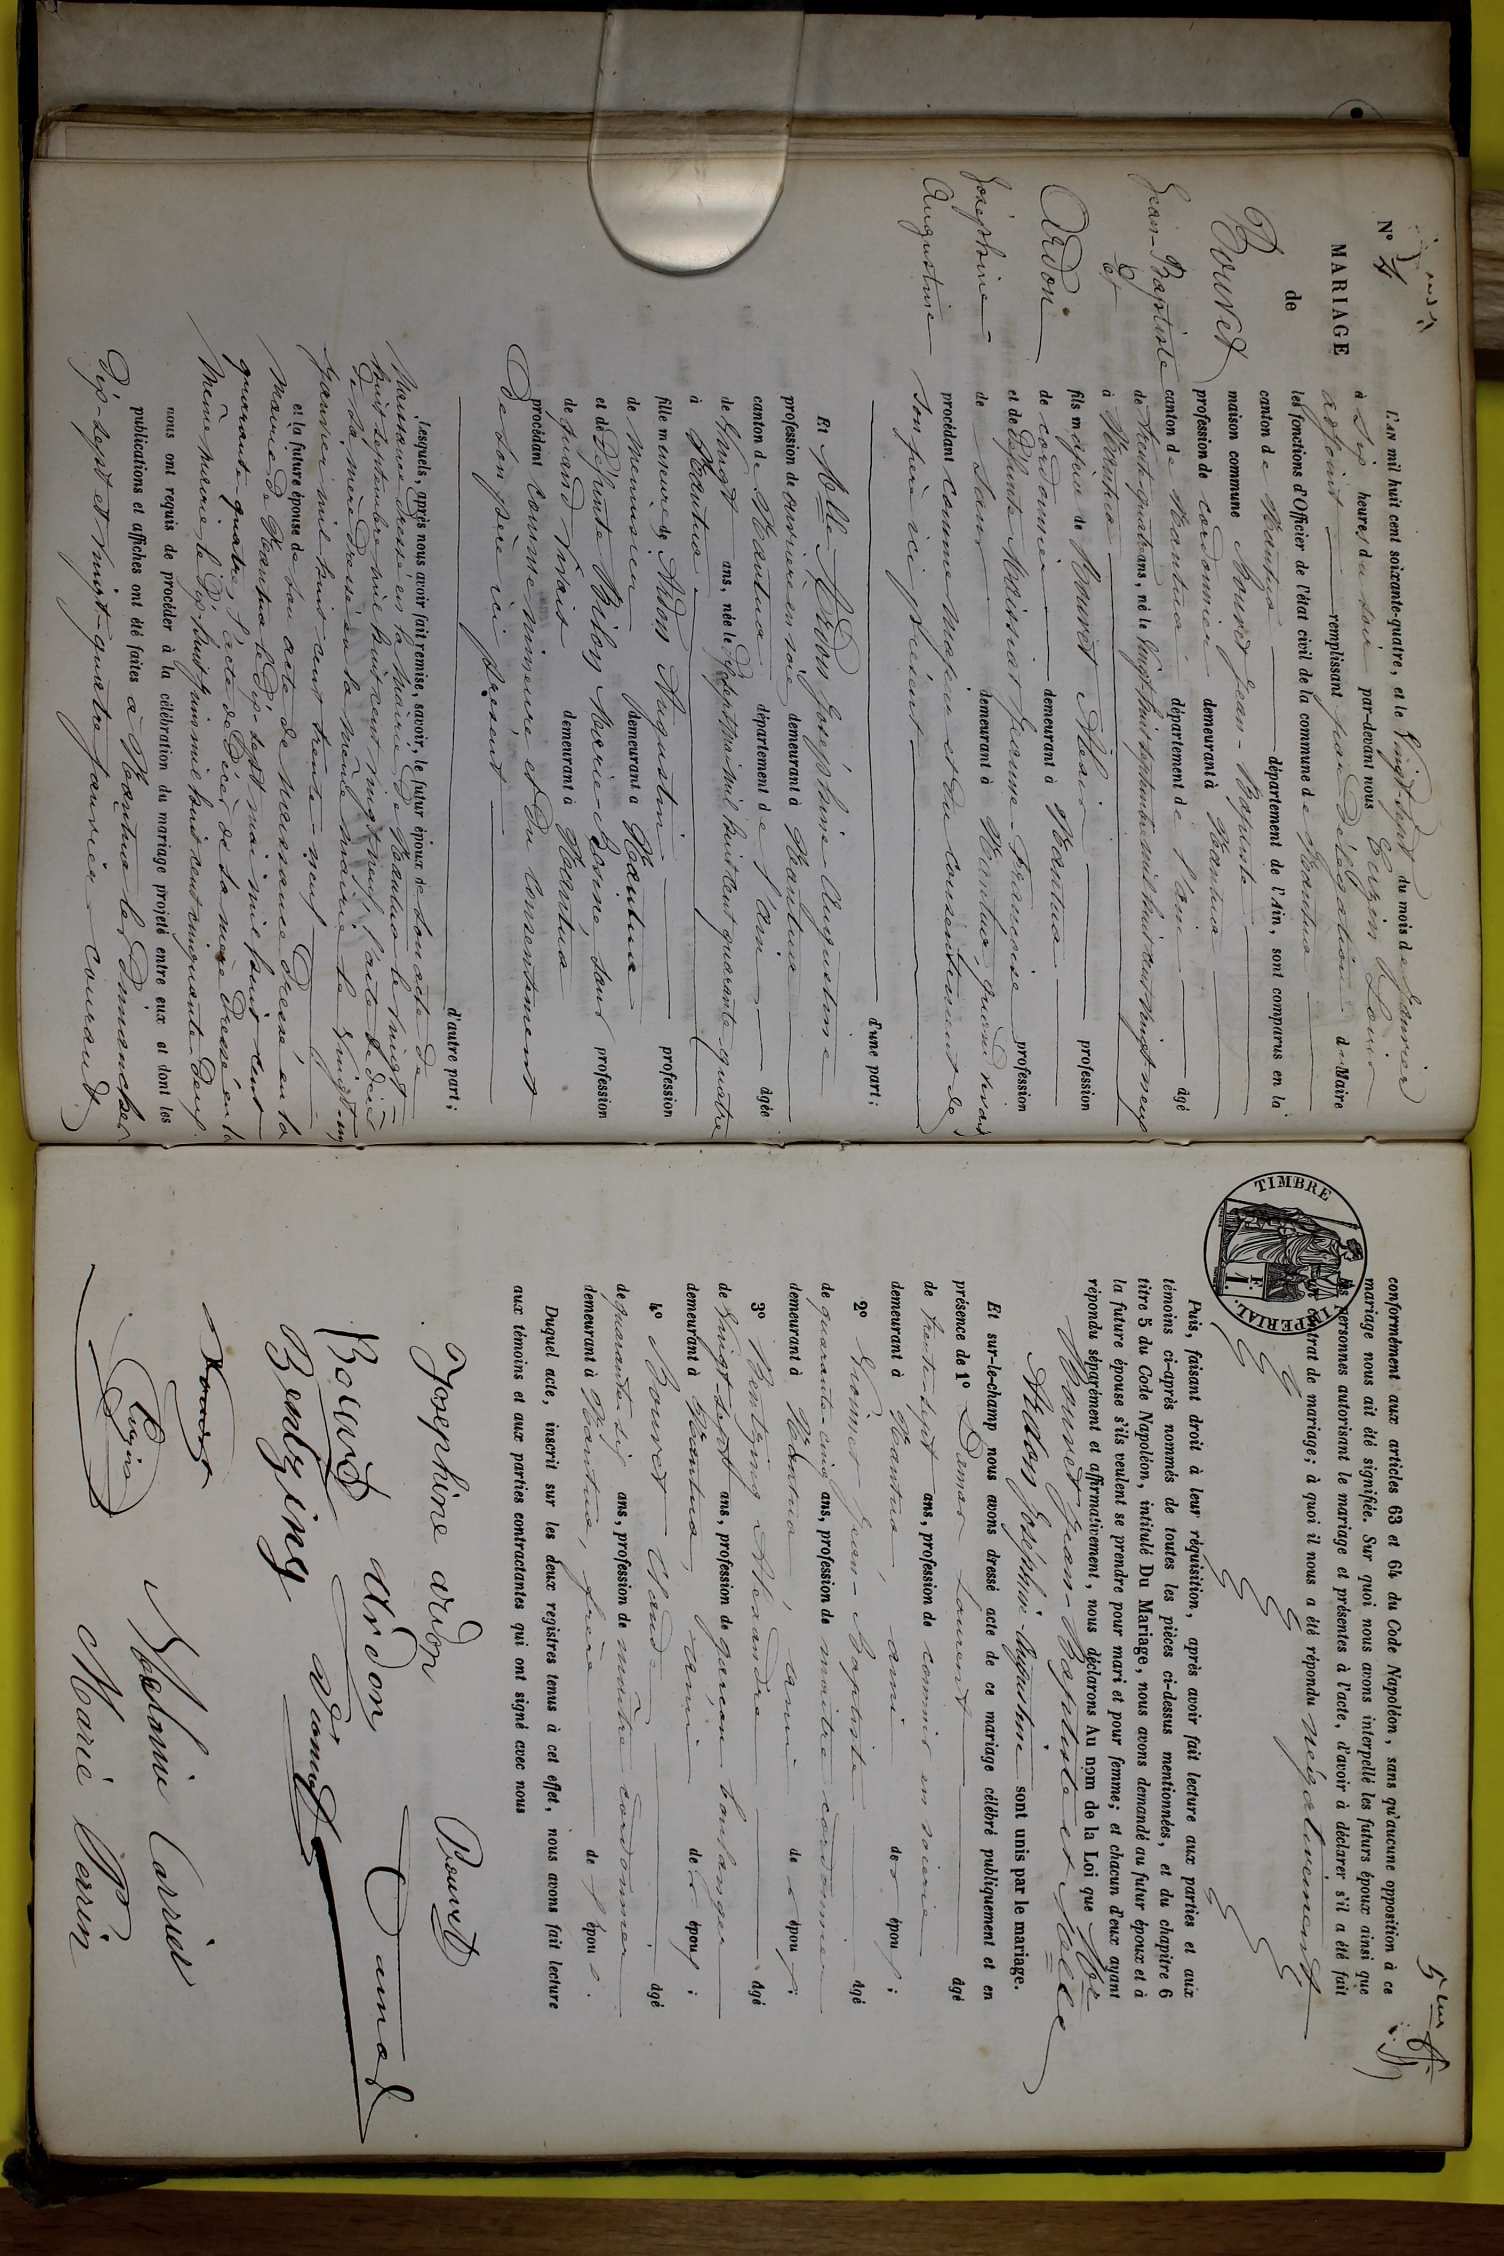 N° 4
MARIAGE
de
Bouvet
Jean-Baptiste
et
Ardon
Joséphine
Augustine
L'an mil huit cent soixante-quatre, et le Vingt-sept du mois de Janvier
à six heures du soir par-devant nous Eugin Louis
adjoint remplissant par délégation du Maire
les fonctions d'Officier de l'état civil de la commune de Nantua
canton de Nantua département de l'Ain, sont comparus en la
maison commune Bouvet Jean-Baptiste
profession de cordonnier demeurant à Nantua
canton de Nantua département de l'ain âgé
de trente-quatre ans, né le Vingt-huit septembre mil huit cent vingt-neuf
à Nantua
fils majeur de Bouvet Alexis profession
de cordonnier demeurant à Nantua
et de Défunte Maissiat Jeanne-Francoise profession
de sans demeurant à Nantua, quand vivait
procédant comme majeur et du consentement de
son père ici présent
d'une part;
Et Melle Ardon Joséphine-Augustine
profession de ouvrière en soie demeurant à Nantua
canton de Nantua département de l'ain âgée
de Vingt ans, née le Dix-sept mai mil huit cent quarante-quatre
à Nantua
fille mineure de Ardon Augustin profession
de menuisier demeurant à Nantua
et de Défunte Bilon Marie- sans profession
de quand vivait demeurant à Nantua
procédant comme mineure et du consentement
de son père ici présent
d'autre part;
Lesquels, après nous avoir fait remise, savoir, le futur époux de son acte de
Naissance dressé en la mairie de Nantua le vingt-
huit septembre mil huit cent vingt neuf, l'acte de décès
de sa mère dressé en la même mairie le Vingt-un
Janvier mil huit cent trente-neuf
et la future épouse de son acte de naissance dressé en la
mairie de Nantua le Dix-sept mai mil huit cent
quarante-quatre, l'acte de Décès de sa mère dressé en la
même mairie le Dix-huit juin mil huit cent cinquante-deux
nous ont requis de procéder à la célébration du mariage projeté entre eux et dont les
publications et affiches ont été faites à Nantua les Dimanches
dix-sept et vingt-quatre janvier courant
conformément aux articles 63 et 64 du Code Napoléon, sans qu'aucune opposition à ce
mariage nous ait été signifiée. Sur quoi nous avons interpellé les futurs époux ainsi que
les personnes autorisant le mariage et présentes à l'acte, d'avoir à déclarer s'il a été fait
un contrat de mariage; à quoi il nous a été répondu négativement
TIMBRE IMPERIAL
1 F.
Puis, faisant droit à leur réquisition, après avoir fait lecture aux parties et aux
témoins ci-après nommés de toutes les pièces ci-dessus mentionnées, et du chapitre 6
titre 5 du Code Napoléon, intitulé Du Mariage, nous avons demandé au futur époux et à
la future épouse s'ils veulent se prendre pour mari et pour femme; et chacun d'eux ayant
répondu séparément et affirmativement, nous déclarons Au nom de la Loi que Mr
Bouvet Jean-Baptiste et Melle
Ardon Joséphine-Augustine sont unis par le mariage.
Et sur-le-champ nous avons dressé acte de ce mariage célébré publiquement et en
présence de 1° Laurent âgé
de trente-sept ans, profession de commis en soierie
demeurant à Nantua, ami des époux;
2° Jean-Baptiste âgé
de quarante-cinq ans, profession de maître cordonnier
demeurant à Nantua, ami des époux;
3° Bentzing Alexandre âgé
de Vingt-sept ans, profession de garçon boulanger
demeurant à Nantua, ami des époux;
4° Bouvet Claude âgé
de quarante-six ans, profession de maître cordonnier
demeurant à Nantua, frère de l'époux.
Duquel acte, inscrit sur les deux registres tenus à cet effet, nous avons fait lecture
aux témoins et aux parties contractantes qui ont signé avec nous
Josephine ardon Bouvet
Bouvet ardon
Bentzing
Melanie Carrier
Marie Perrin